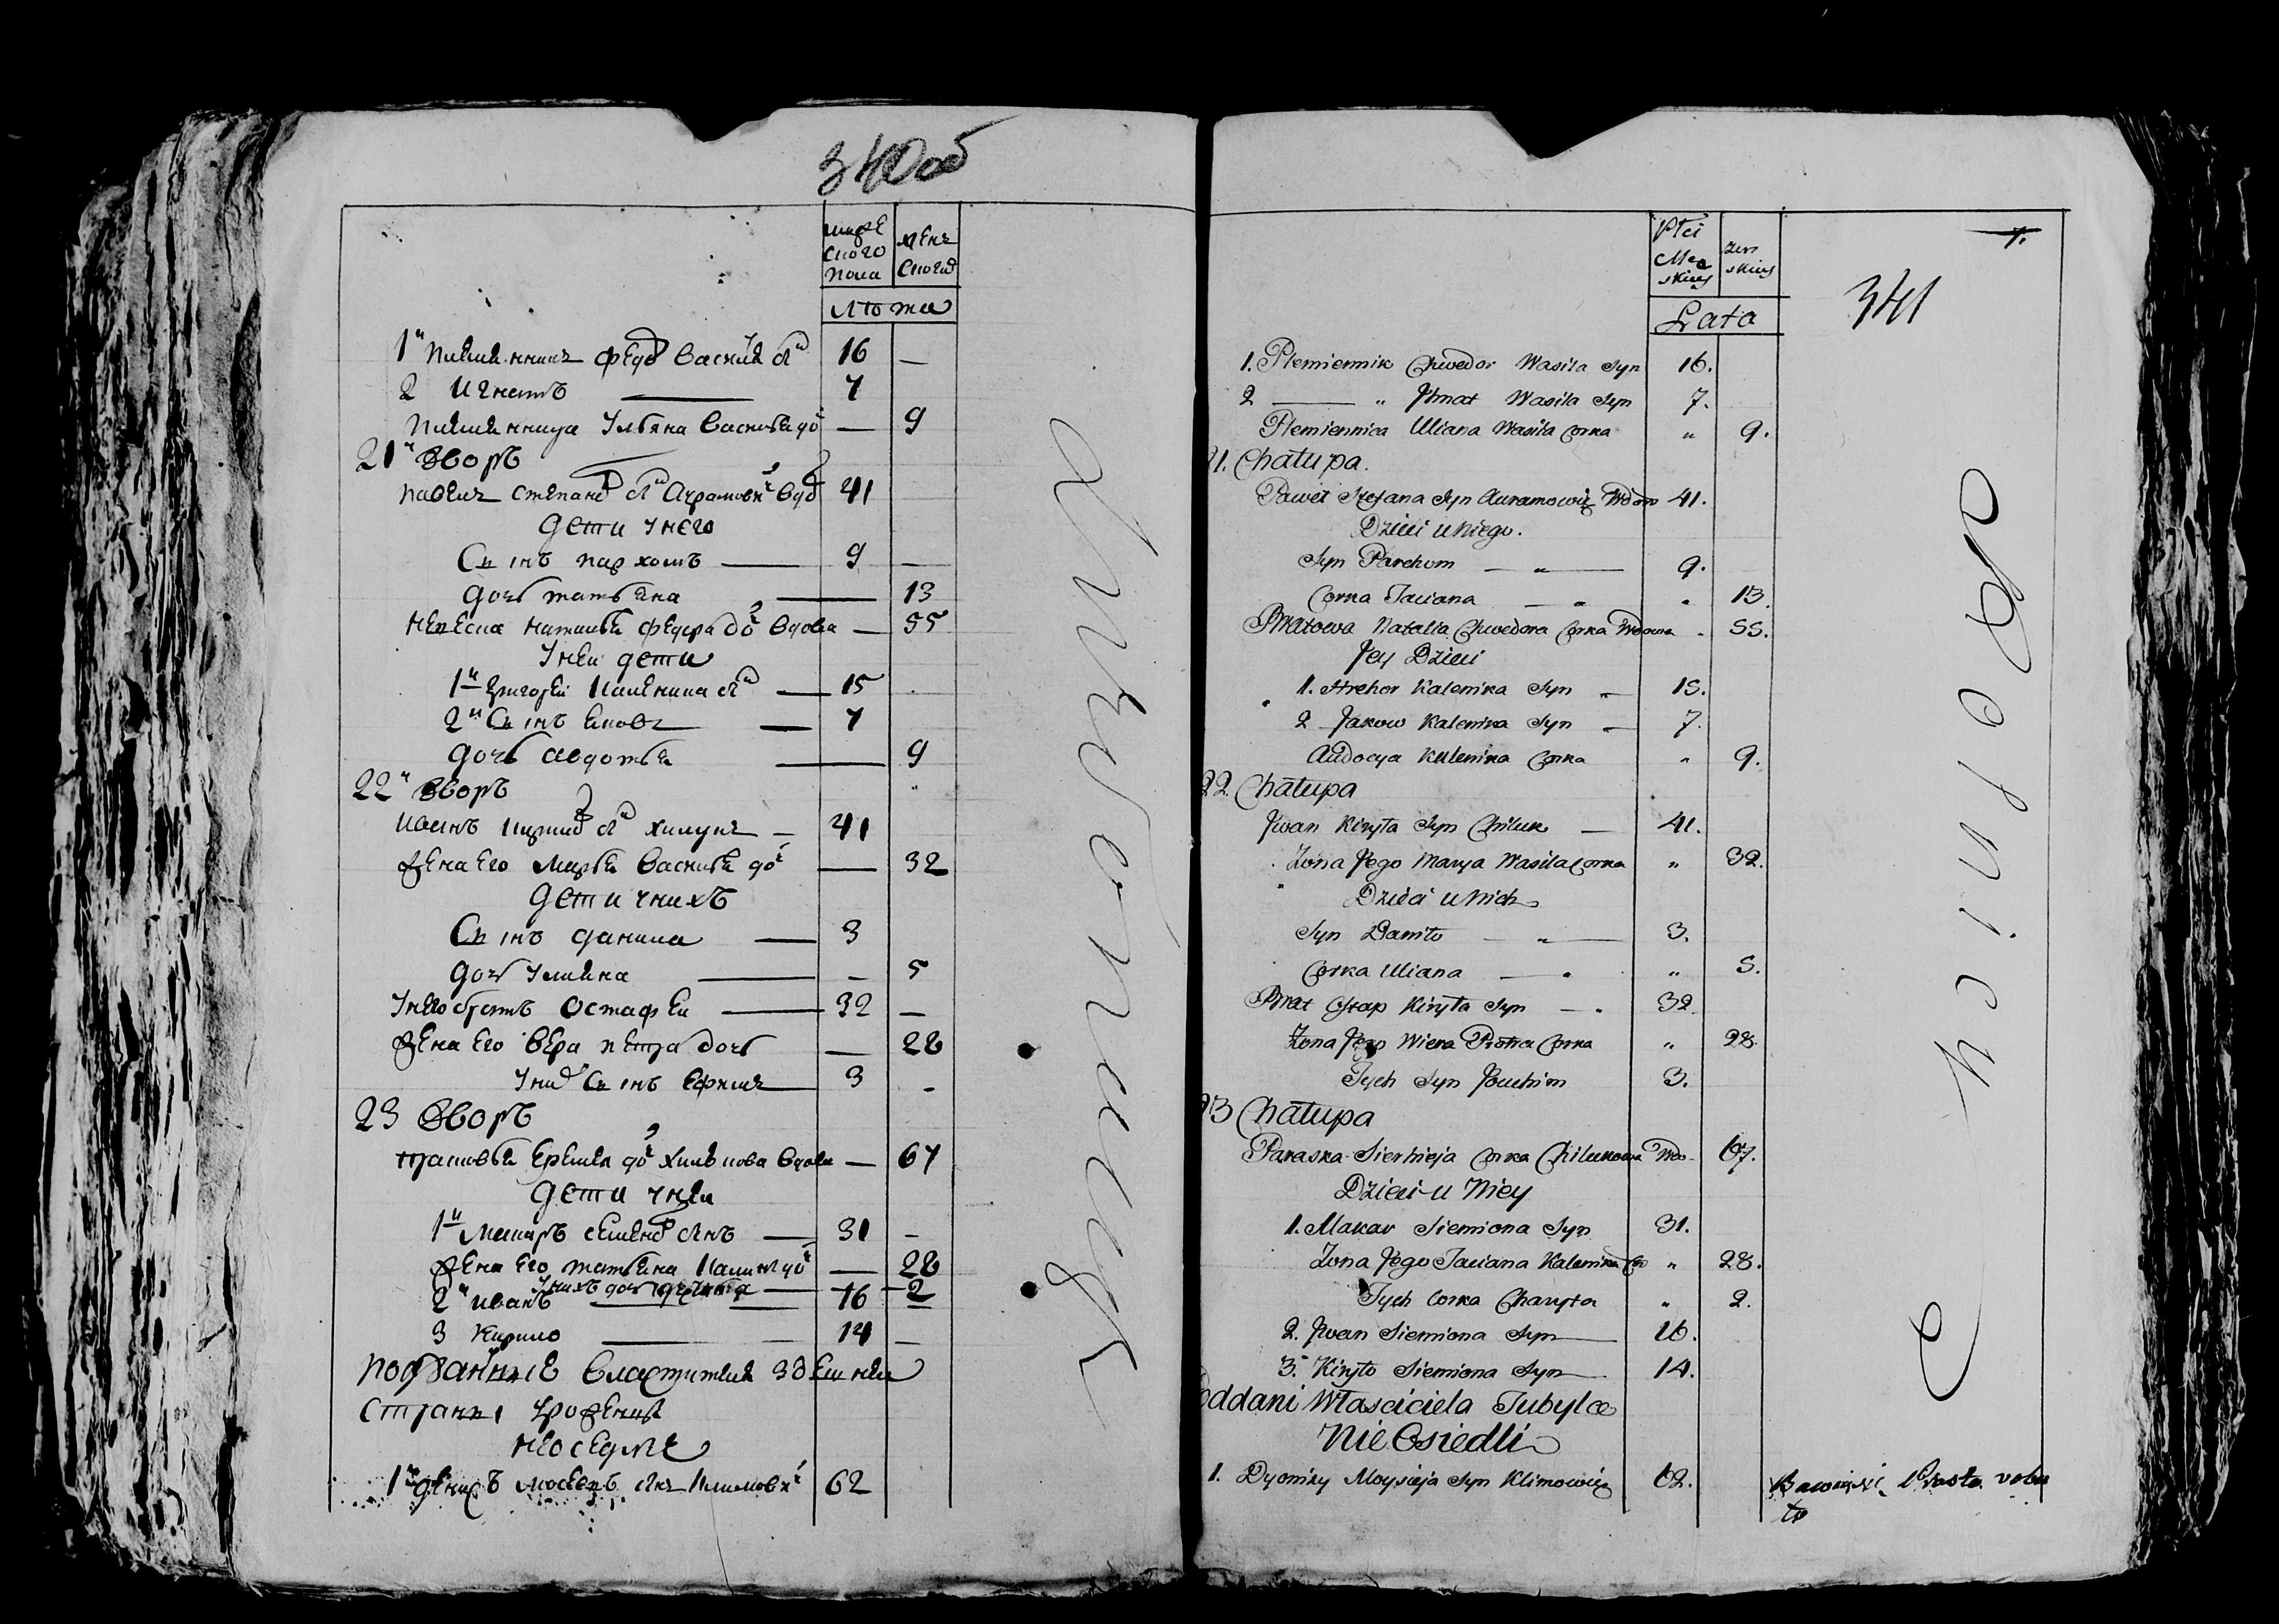 340об
мужескаго пола
женскаго
лѣта
1й племянникъ Федоръ Василя сынъ 16 —
2 Игнатъ — 7
племянница Ульяна Василья до 9
21й Дворъ
Павелъ Степана сынъ Аврамовичъ вдов 41
Дети у него
Сынъ Пархомъ — 9 —
Дочь Татьяна — 13
Невестка Наталья Федора до вдова — 55
У неи дети
1й Григореи Каленика сынъ — 15
2й Сынъ Яковъ — 7
Дочь Авдотья — 9
22й Дворъ
Иванъ Кирила сынъ Хилукъ — 41
Жена его Марья Василья до — 32
Дети у нихъ
Сынъ Данила — 3
Дочь Ульяна — — 5
У него братъ Остафеи — 32 —
Жена его Вера Петра дочь — 28
У них Сынъ Ефимъ — 3 -
23 Дворъ
Прасковья до вдова — 67
Дети у неи
1й Макаръ Семена сынъ — 31 -
Жена его Татьяна до — 28
У нихъ доч — 2
2й Иванъ — 16 —
3 Кирило — 14 —
подданные здешнеи
страны урожения
неоседлые
1й Денисъ сынъ Климовичъ 62
Plci Męskiey
żenskiey
Lata
341
1. Plemiennik Chwedor Wasila Syn 16.
2 — " Ihnat Wasila Syn 7.
Plemiennica Uliana Wasila Corka " 9.
21. Chałupa.
Paweł Stefana Syn Auramowicz Wdow 41.
Dzieci u Niego.
Syn Parchom — " — 9.
Corka Taciana — " " 13.
Bratowa Natalla Chwedora Corka Wdowa " 55.
Jey Dzieci
1. Hrehor Kalenika Syn " — 15.
2 Jakow Kalenika Syn — 7.
Audocya Kalenika Corka " 9.
22. Chałupa
Jwan Kiryła Syn Chiluk — 41.
Żona Jego Marya Wasila Corka " 32.
Dzieci u Nich
Syn Daniło — " — 3.
Corka Uliana — " " 5.
Brat Ostap Kiryła Syn — . 32.
Żona Jego Wiera Piotra Corka " 28.
Tych Syn Jouchim 3.
23 Chałupa
Paraska Sierhieja Corka Chilukowa Wdo 67.
Dzieci u Niey
1. Makar Siemiona Syn 31.
Żona Jego Taciana Kalenika Cor " 28.
Tych Corka Charyta " 2.
2. Jwan Siemiona Syn — 16.
3. Kiryło Siemiona Syn 14.
Poddani Własciciela Tubylce
Nie Osiedli
1. Dyonizy Moysieja Syn Klimowicz 62.